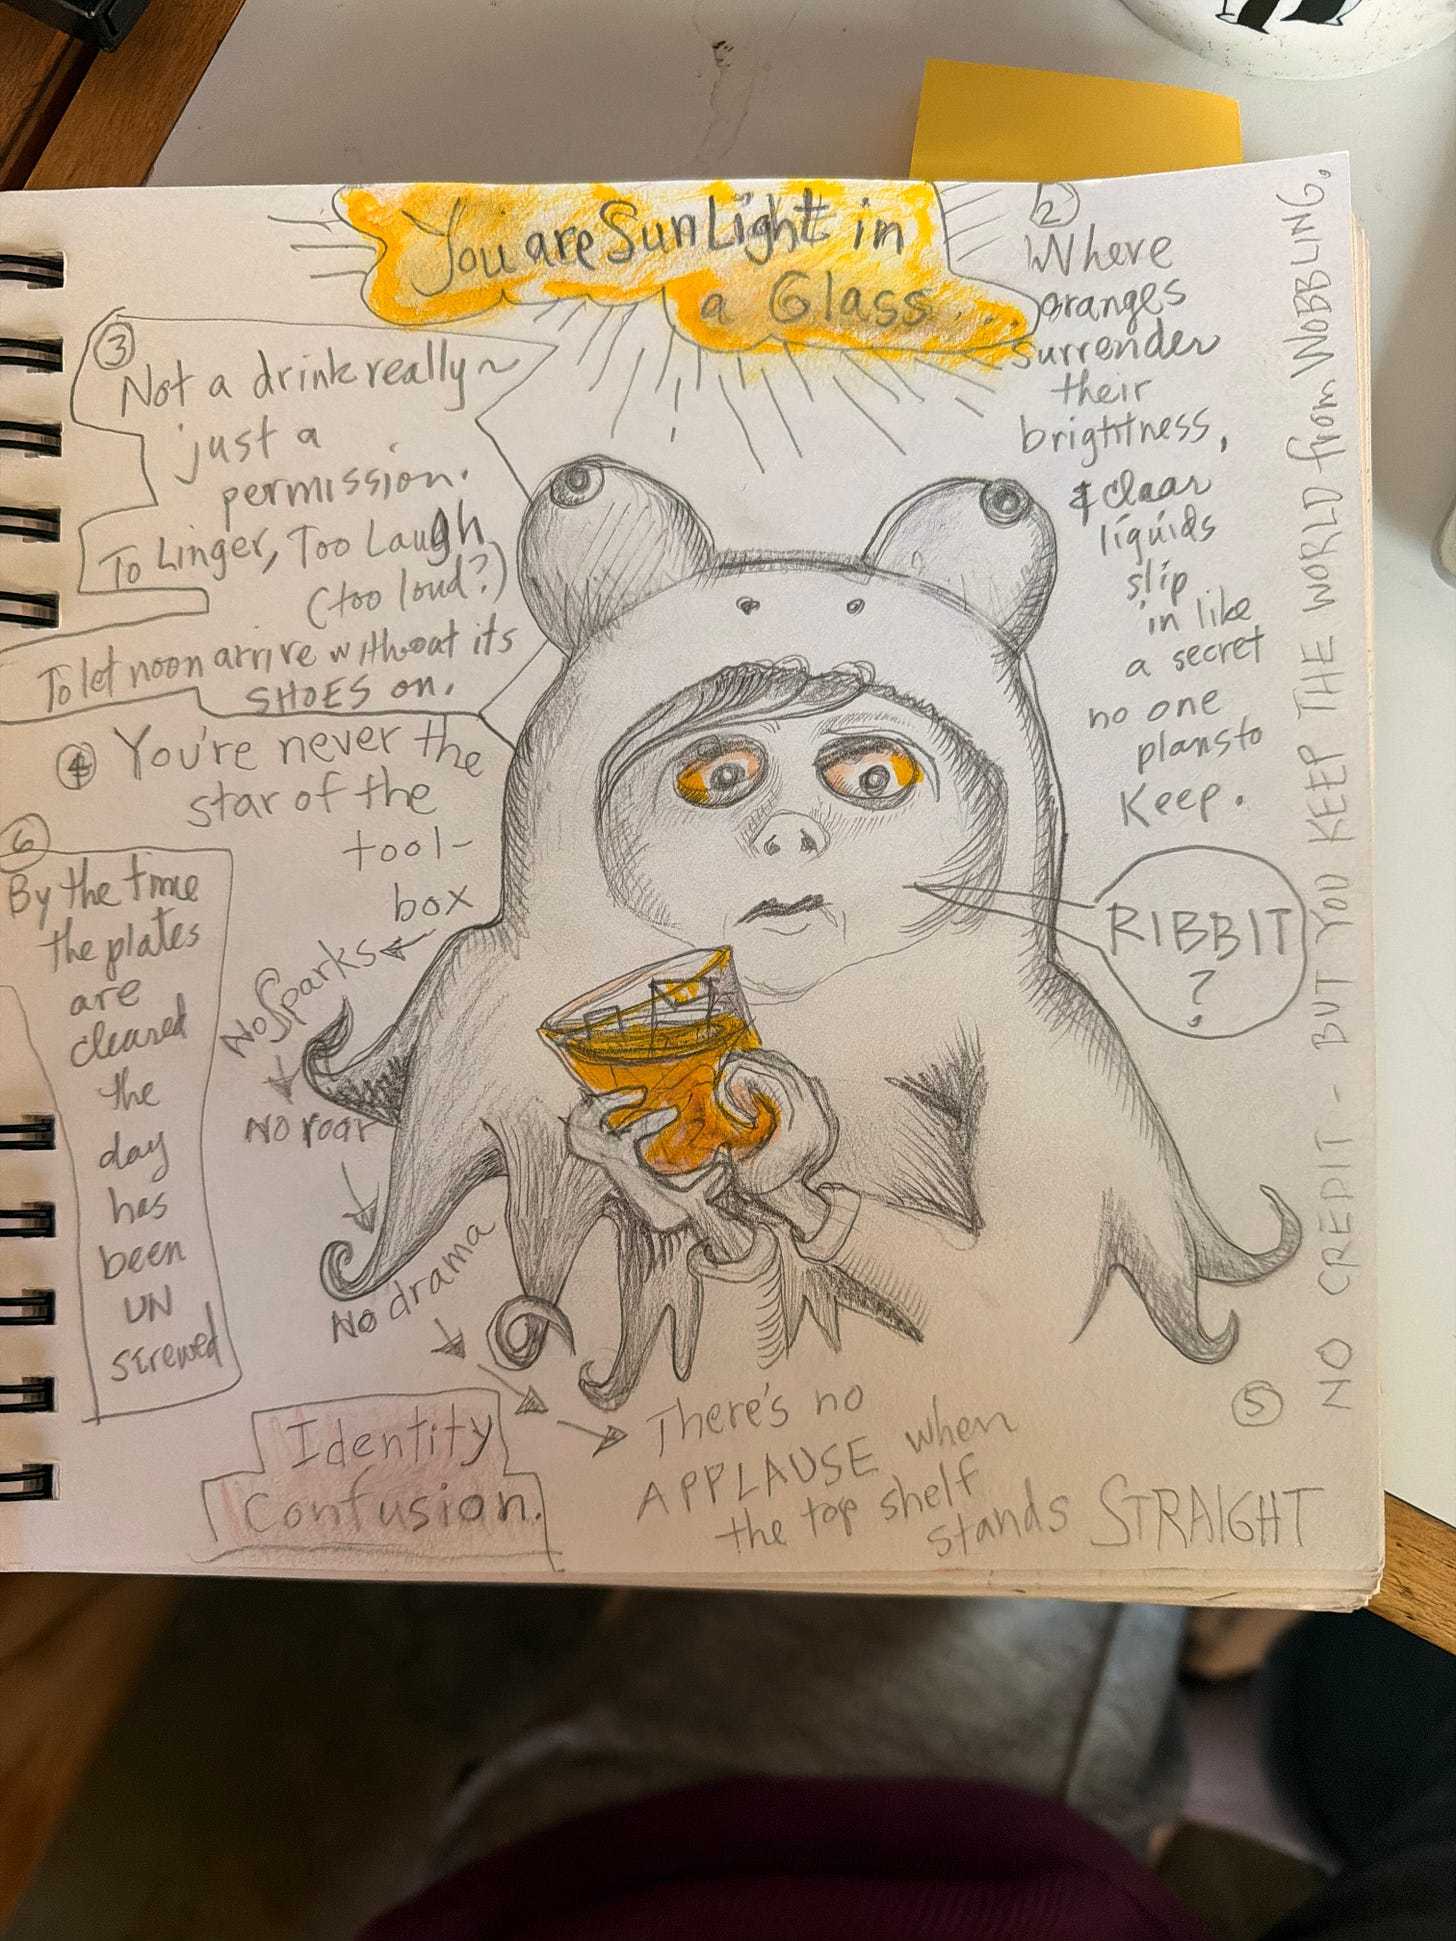 You are SunLight in
a Glass...
2
Where
oranges
surrender
their
brightness,
& claar
liquids
slip
in like
a secret
no one
plans to
Keep.
3
Not a drink really~
just a
permission.
To Linger, Too Laugh
(too loud?)
To let noon arrive without its
SHOES on.
4 You're never the
star of the
tool-
box
No Sparks
No roar
No drama
There's no
APPLAUSE when
the top shelf
stands STRAIGHT
5
NO CREDIT - BUT YOU KEEP THE WORLD from WOBBLING.
6
By the time
the plates
are
cleared
the
day
has
been
UN
screwed
RIBBIT
?
Identity
Confusion.